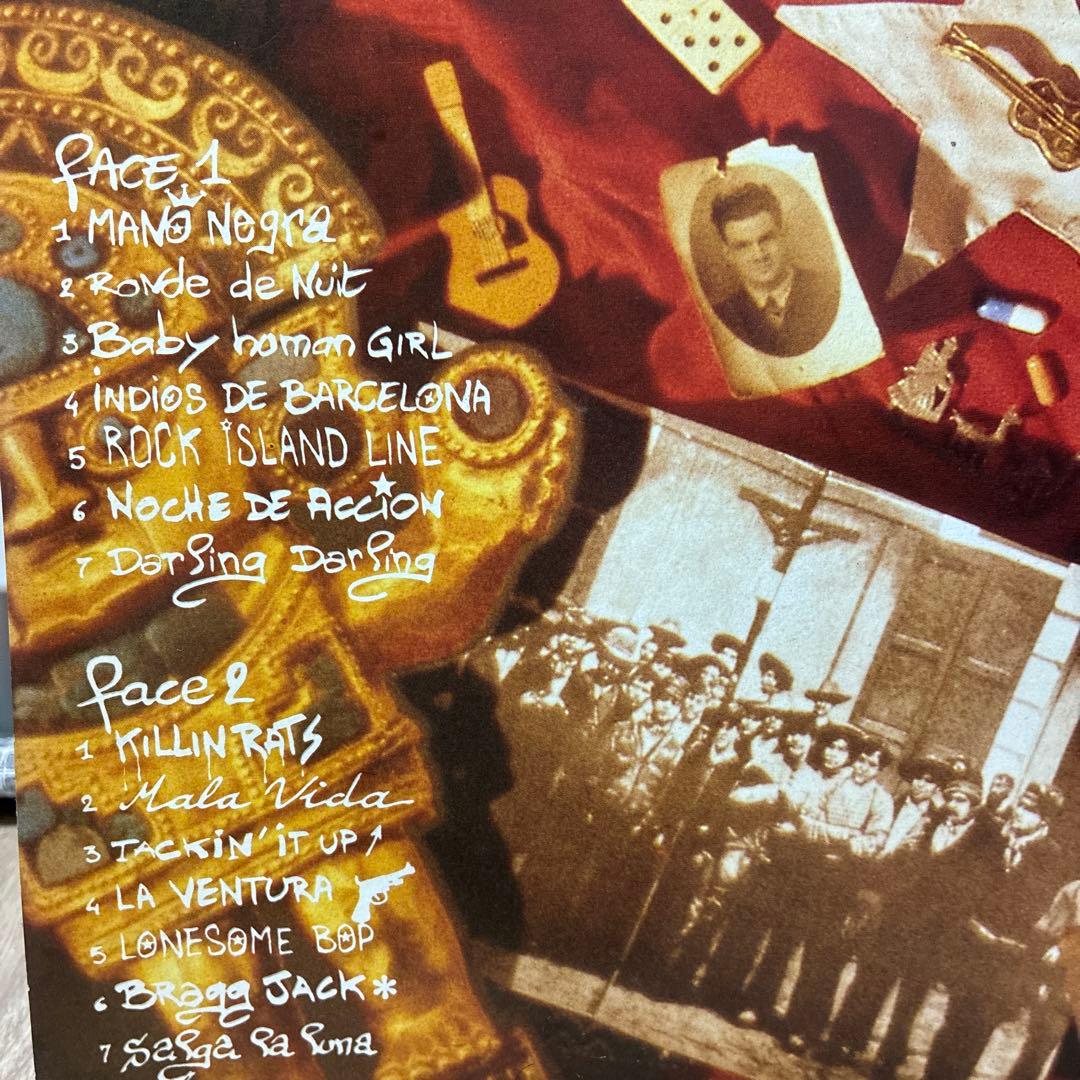 FACE 1
1 MANO Negra
2 Ronde de Nuit
3 Baby homan GIRL
4 INDIOS DE BARCELONA
5 ROCK ISLAND LINE
6 NOCHE DE ACCION
7 Darling Darling
face 2
1 KILLIN RATS
2 Mala Vida
3 TACKIN' IT UP
4 LA VENTURA
5 LONESOME BOP
6 BRagg JACK*
7 Salga la luna